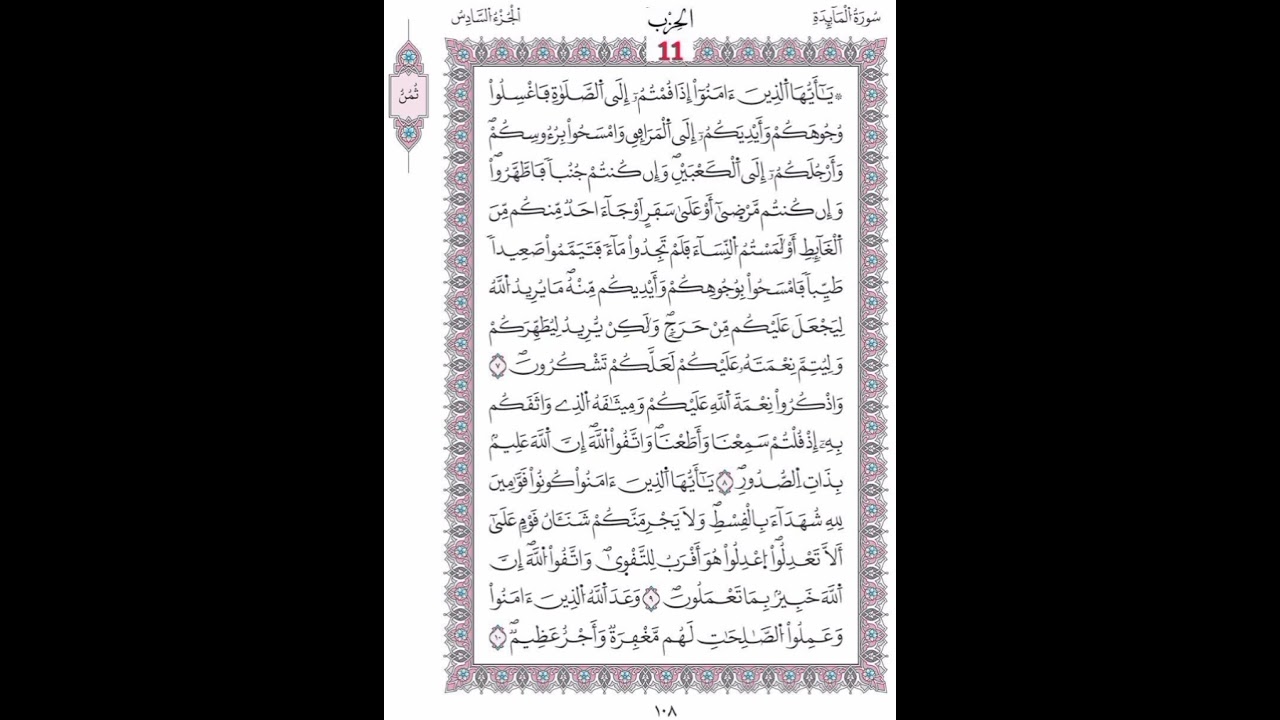 سُورَةُ الْمَآئِدَةِ
الحِزْب
الْجُزْءُ السَّادِسُ
11
ثُمُنُ
۞ يَٰٓأَيُّهَا اَلذِينَ ءَامَنُوٓاْ إِذَا قُمْتُمُۥٓ إِلَى اَلصَّلَوٰةِ فَاغْسِلُواْ
وُجُوهَكُمْ وَأَيْدِيَكُمُۥٓ إِلَى اَلْمَرَافِقِ وَامْسَحُواْ بِرُءُوسِكُمْۖ
وَأَرْجُلَكُمُۥٓ إِلَى اَلْكَعْبَيْنِۖ وَإِن كُنتُمْ جُنُباٗ فَاطَّهَّرُواْۖ
وَإِن كُنتُم مَّرْض۪ىٰٓ أَوْ عَلَىٰ سَفَرٍ اَوْ جَآءَ احَدٞ مِّنكُم مِّنَ
اَلْغَآئِطِ أَوْ لَٰمَسْتُمُ اُلنِّسَآءَ فَلَمْ تَجِدُواْ مَآءٗ فَتَيَمَّمُواْ صَعِيداٗ
طَيِّباٗ فَامْسَحُواْ بِوُجُوهِكُمْ وَأَيْدِيكُم مِّنْهُۖ مَا يُرِيدُ اُللَّهُ
لِيَجْعَلَ عَلَيْكُم مِّنْ حَرَجٖۖ وَلَٰكِنْ يُّرِيدُ لِيُطَهِّرَكُمْ
وَلِيُتِمَّ نِعْمَتَهُۥ عَلَيْكُمْ لَعَلَّكُمْ تَشْكُرُونَۖ ٧
وَاذْكُرُواْ نِعْمَةَ اَللَّهِ عَلَيْكُمْ وَمِيثَٰقَهُ اُلذِے وَاثَقَكُم
بِهِۦٓ إِذْ قُلْتُمْ سَمِعْنَا وَأَطَعْنَاۖ وَاتَّقُواْ اُللَّهَۖ إِنَّ اَللَّهَ عَلِيمُۢ
بِذَاتِ اِلصُّدُورِۖ ٨ يَٰٓأَيُّهَا اَلذِينَ ءَامَنُواْ كُونُواْ قَوَّٰمِينَ
لِلهِ شُهَدَآءَ بِالْقِسْطِۖ وَلَا يَجْرِمَنَّكُمْ شَنَـَٔانُ قَوْمٍ عَلَىٰٓ
أَلَّا تَعْدِلُواْۖ اُ۪عْدِلُواْ هُوَ أَقْرَبُ لِلتَّقْو۪ىٰۖ وَاتَّقُواْ اُللَّهَۖ إِنَّ
اَللَّهَ خَبِيرُۢ بِمَا تَعْمَلُونَۖ ٩ وَعَدَ اَللَّهُ اُلذِينَ ءَامَنُواْ
وَعَمِلُواْ اُلصَّٰلِحَٰتِ لَهُم مَّغْفِرَةٞ وَأَجْرٌ عَظِيمٞۖ ١٠
١٠٨